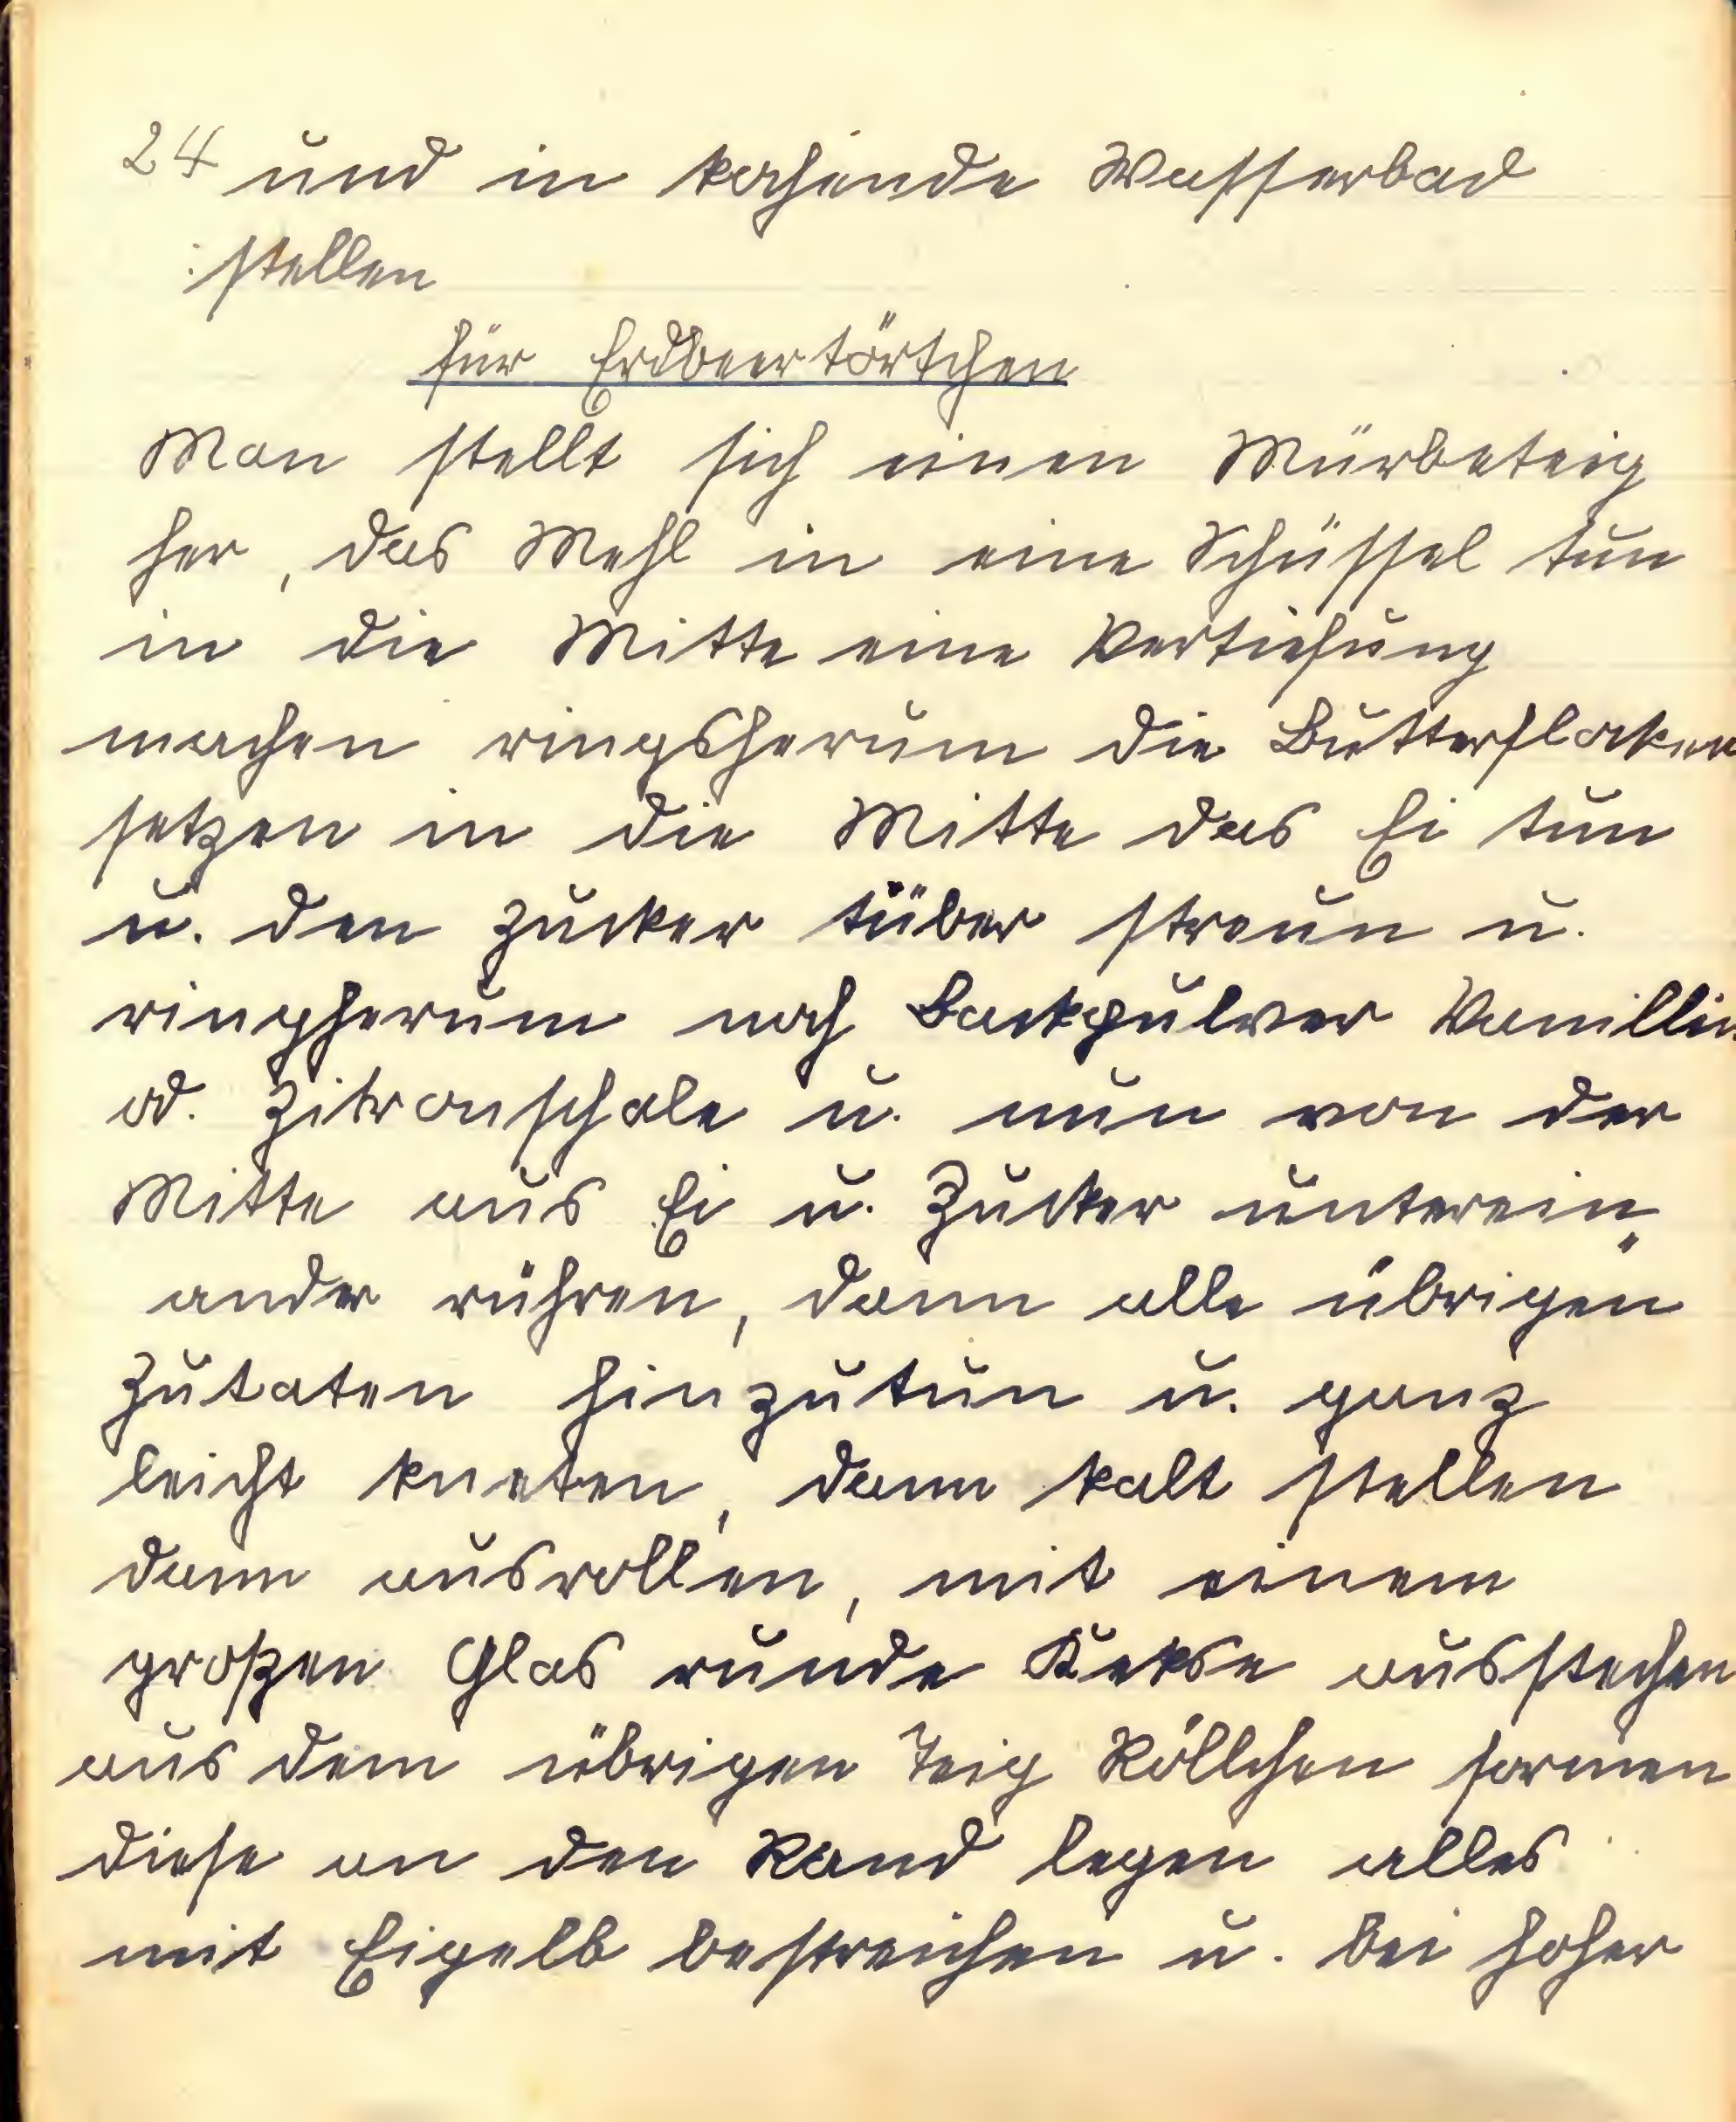 24 und in kochende Wasserbad
stellen
für Erdbeertörtchen
Man stellt sich einen Mürbeteig
her, das Mehl in eine Schüssel tun
in die Mitte eine Vertiefung
machen ringsherum die Butterflocken
setzen in die Mitte das Ei tun
u. den Zucker tüber streun u.
ringherum noch Backpulver Vanillin
od. Zitronschale u. nun von der
Mitte aus Ei u. Zucker unterein„
ander rühren, dann alle übrigen
Zutaten hinzutun u. ganz
leicht kneten, dann kalt stellen
dann ausrollen, mit einem
großen Glas runde Kekse ausstechen
aus dem übrigen Teig Röllchen formen
diese an den Rand legen alles
mit Eigelb bestreichen u. bei hoher